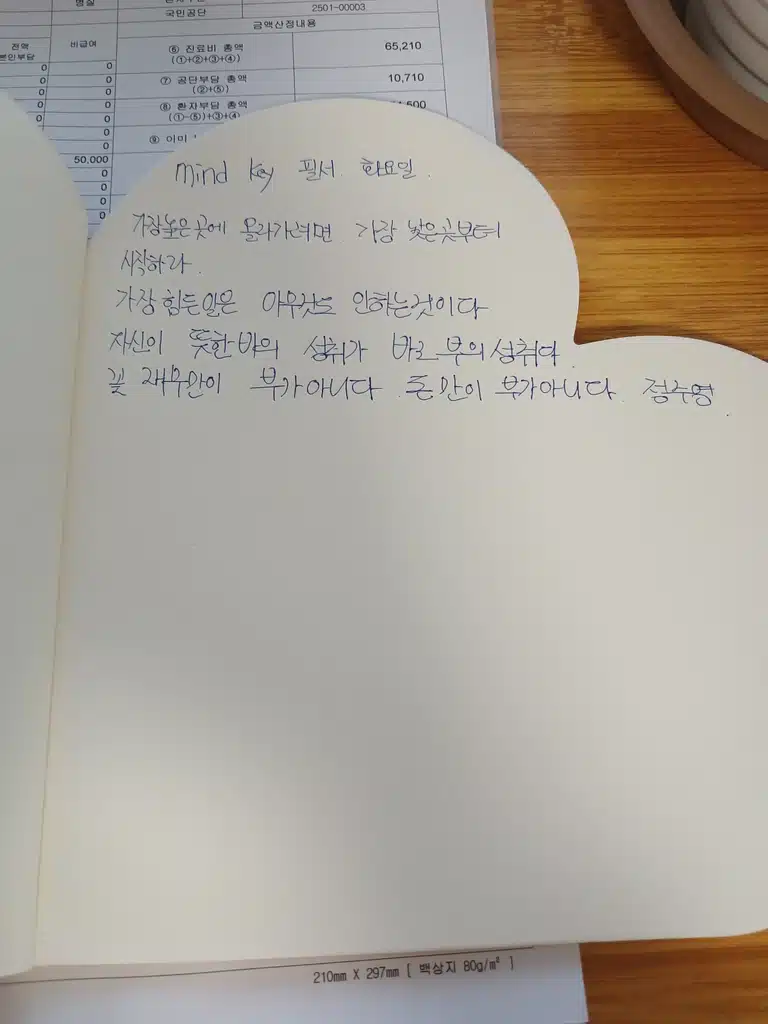 병실
국민공단 2501-00003
금액산정내용
전액 본인부담
비급여
⑥ 진료비 총액 (①+②+③+④) 65,210
⑦ 공단부담 총액 (②+⑤) 10,710
⑧ 환자부담 총액 (①-⑤)+③+④
⑨ 이미
0 0
0 0
0 0
0 0
0 0
0
0
50,000
0
0
0
0
mind key 필서. 화요일.
가장높은곳에 올라가려면 가장 낮은곳부터
시작하라.
가장힘든일은 아무것도 안하는것이다
자신이 뜻한바의 성취가 바로 부의성취다.
꼭 재무만이 부가아니다. 돈만이 부가아니다. 정수영.
210mm X 297mm [ 백상지 80g/㎡ ]